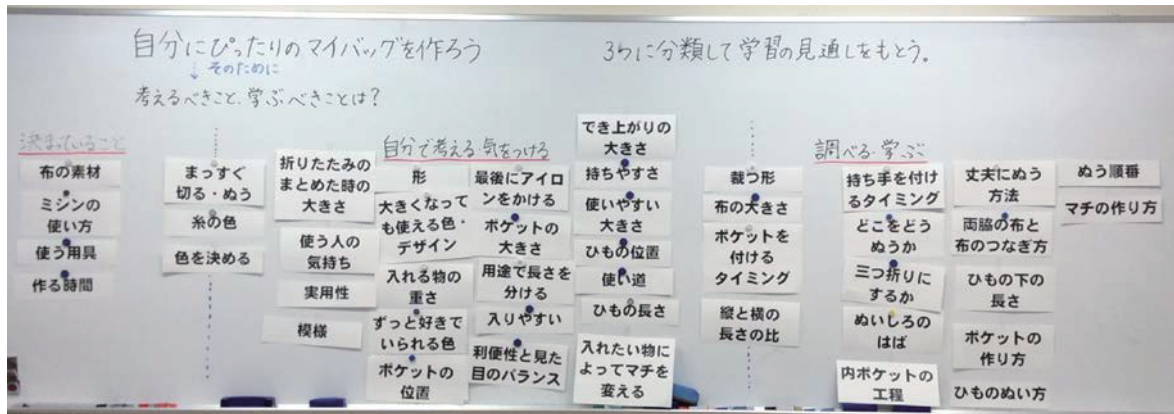 自分にぴったりのマイバッグを作ろう
↓そのために
考えるべきこと、学ぶべきことは？
3つに分類して学習の見通しをもとう。
決まっていること
布の素材
ミシンの
使い方
使う用具
作る時間
まっすぐ
切る・ぬう
糸の色
色を決める
自分で考える・気をつける
折りたたみの
まとめた時の
大きさ
使う人の
気持ち
実用性
模様
形
大きくなって
も使える色・
デザイン
入れる物の
重さ
ずっと好きで
いられる色
ポケットの
位置
最後にアイロ
ンをかける
ポケットの
大きさ
用途で長さを
分ける
入りやすい
利便性と見た
目のバランス
でき上がりの
大きさ
持ちやすさ
使いやすい
大きさ
ひもの位置
使い道
ひもの長さ
入れたい物に
よってマチを
変える
裁つ形
布の大きさ
ポケットを
付ける
タイミング
縦と横の
長さの比
調べる・学ぶ
持ち手を付け
るタイミング
どこをどう
ぬうか
三つ折りに
するか
ぬいしろの
はば
内ポケットの
工程
丈夫にぬう
方法
両脇の布と
布のつなぎ方
ひもの下の
長さ
ポケットの
作り方
ひものぬい方
ぬう順番
マチの作り方